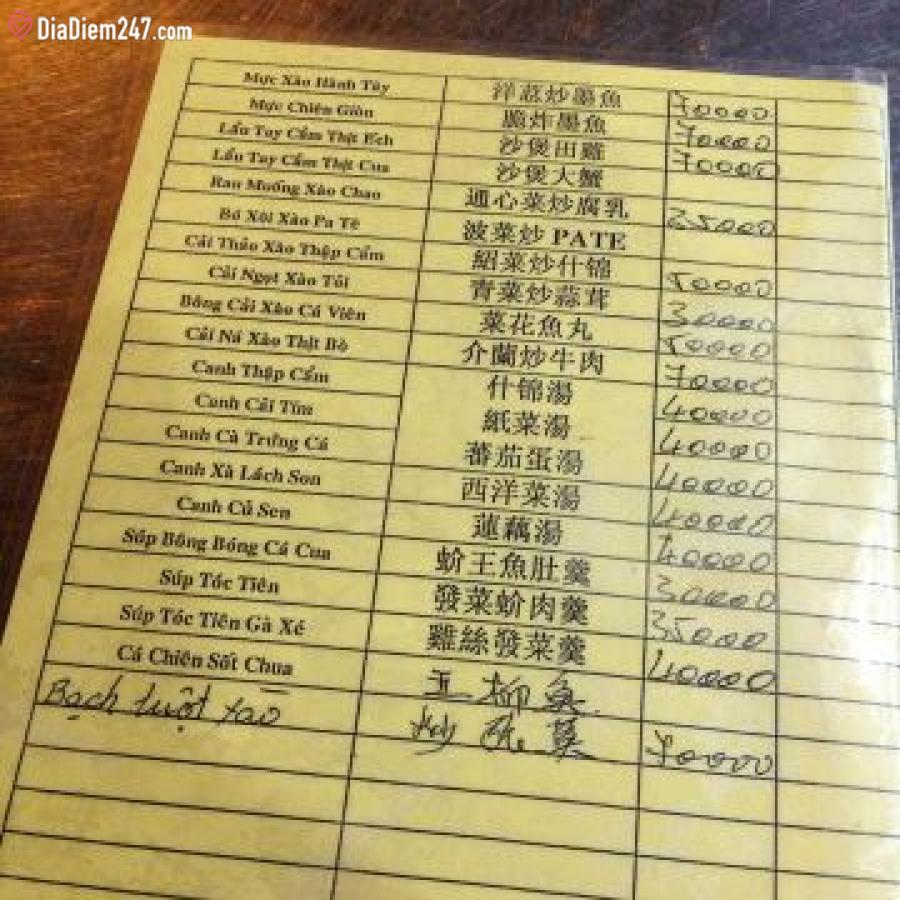 DiaDiem247.com
Mực Xào Hành Tây 洋葱炒墨魚 70000
Mực Chiên Giòn 脆炸墨魚 70000
Lẩu Tay Cầm Thịt Ếch 沙煲田雞 70000
Lẩu Tay Cầm Thịt Cua 沙煲大蟹
Rau Muống Xào Chao 通心菜炒腐乳 25000
Bó Xôi Xào Pa Tê 波菜炒 PATE
Cải Thảo Xào Thập Cẩm 紹菜炒什锦 50000
Cải Ngọt Xào Tỏi 青菜炒蒜茸 30000
Bông Cải Xào Cá Viên 菜花魚丸 50000
Cải Ná Xào Thịt Bò 介蘭炒牛肉 70000
Canh Thập Cẩm 什锦湯 40000
Canh Cải Tím 紙菜湯 40000
Canh Cà Trứng Cá 蕃茄蛋湯 40000
Canh Xà Lách Son 西洋菜湯 40000
Canh Củ Sen 蓮藕湯 40000
Súp Bông Bóng Cá Cua 蚧王魚肚羹 30000
Súp Tóc Tiên 發菜蚧肉羹 35000
Súp Tóc Tiên Gà Xé 雞絲發菜羹 40000
Cá Chiên Sốt Chua 五柳魚
Bạch tuột xào 炒 70000